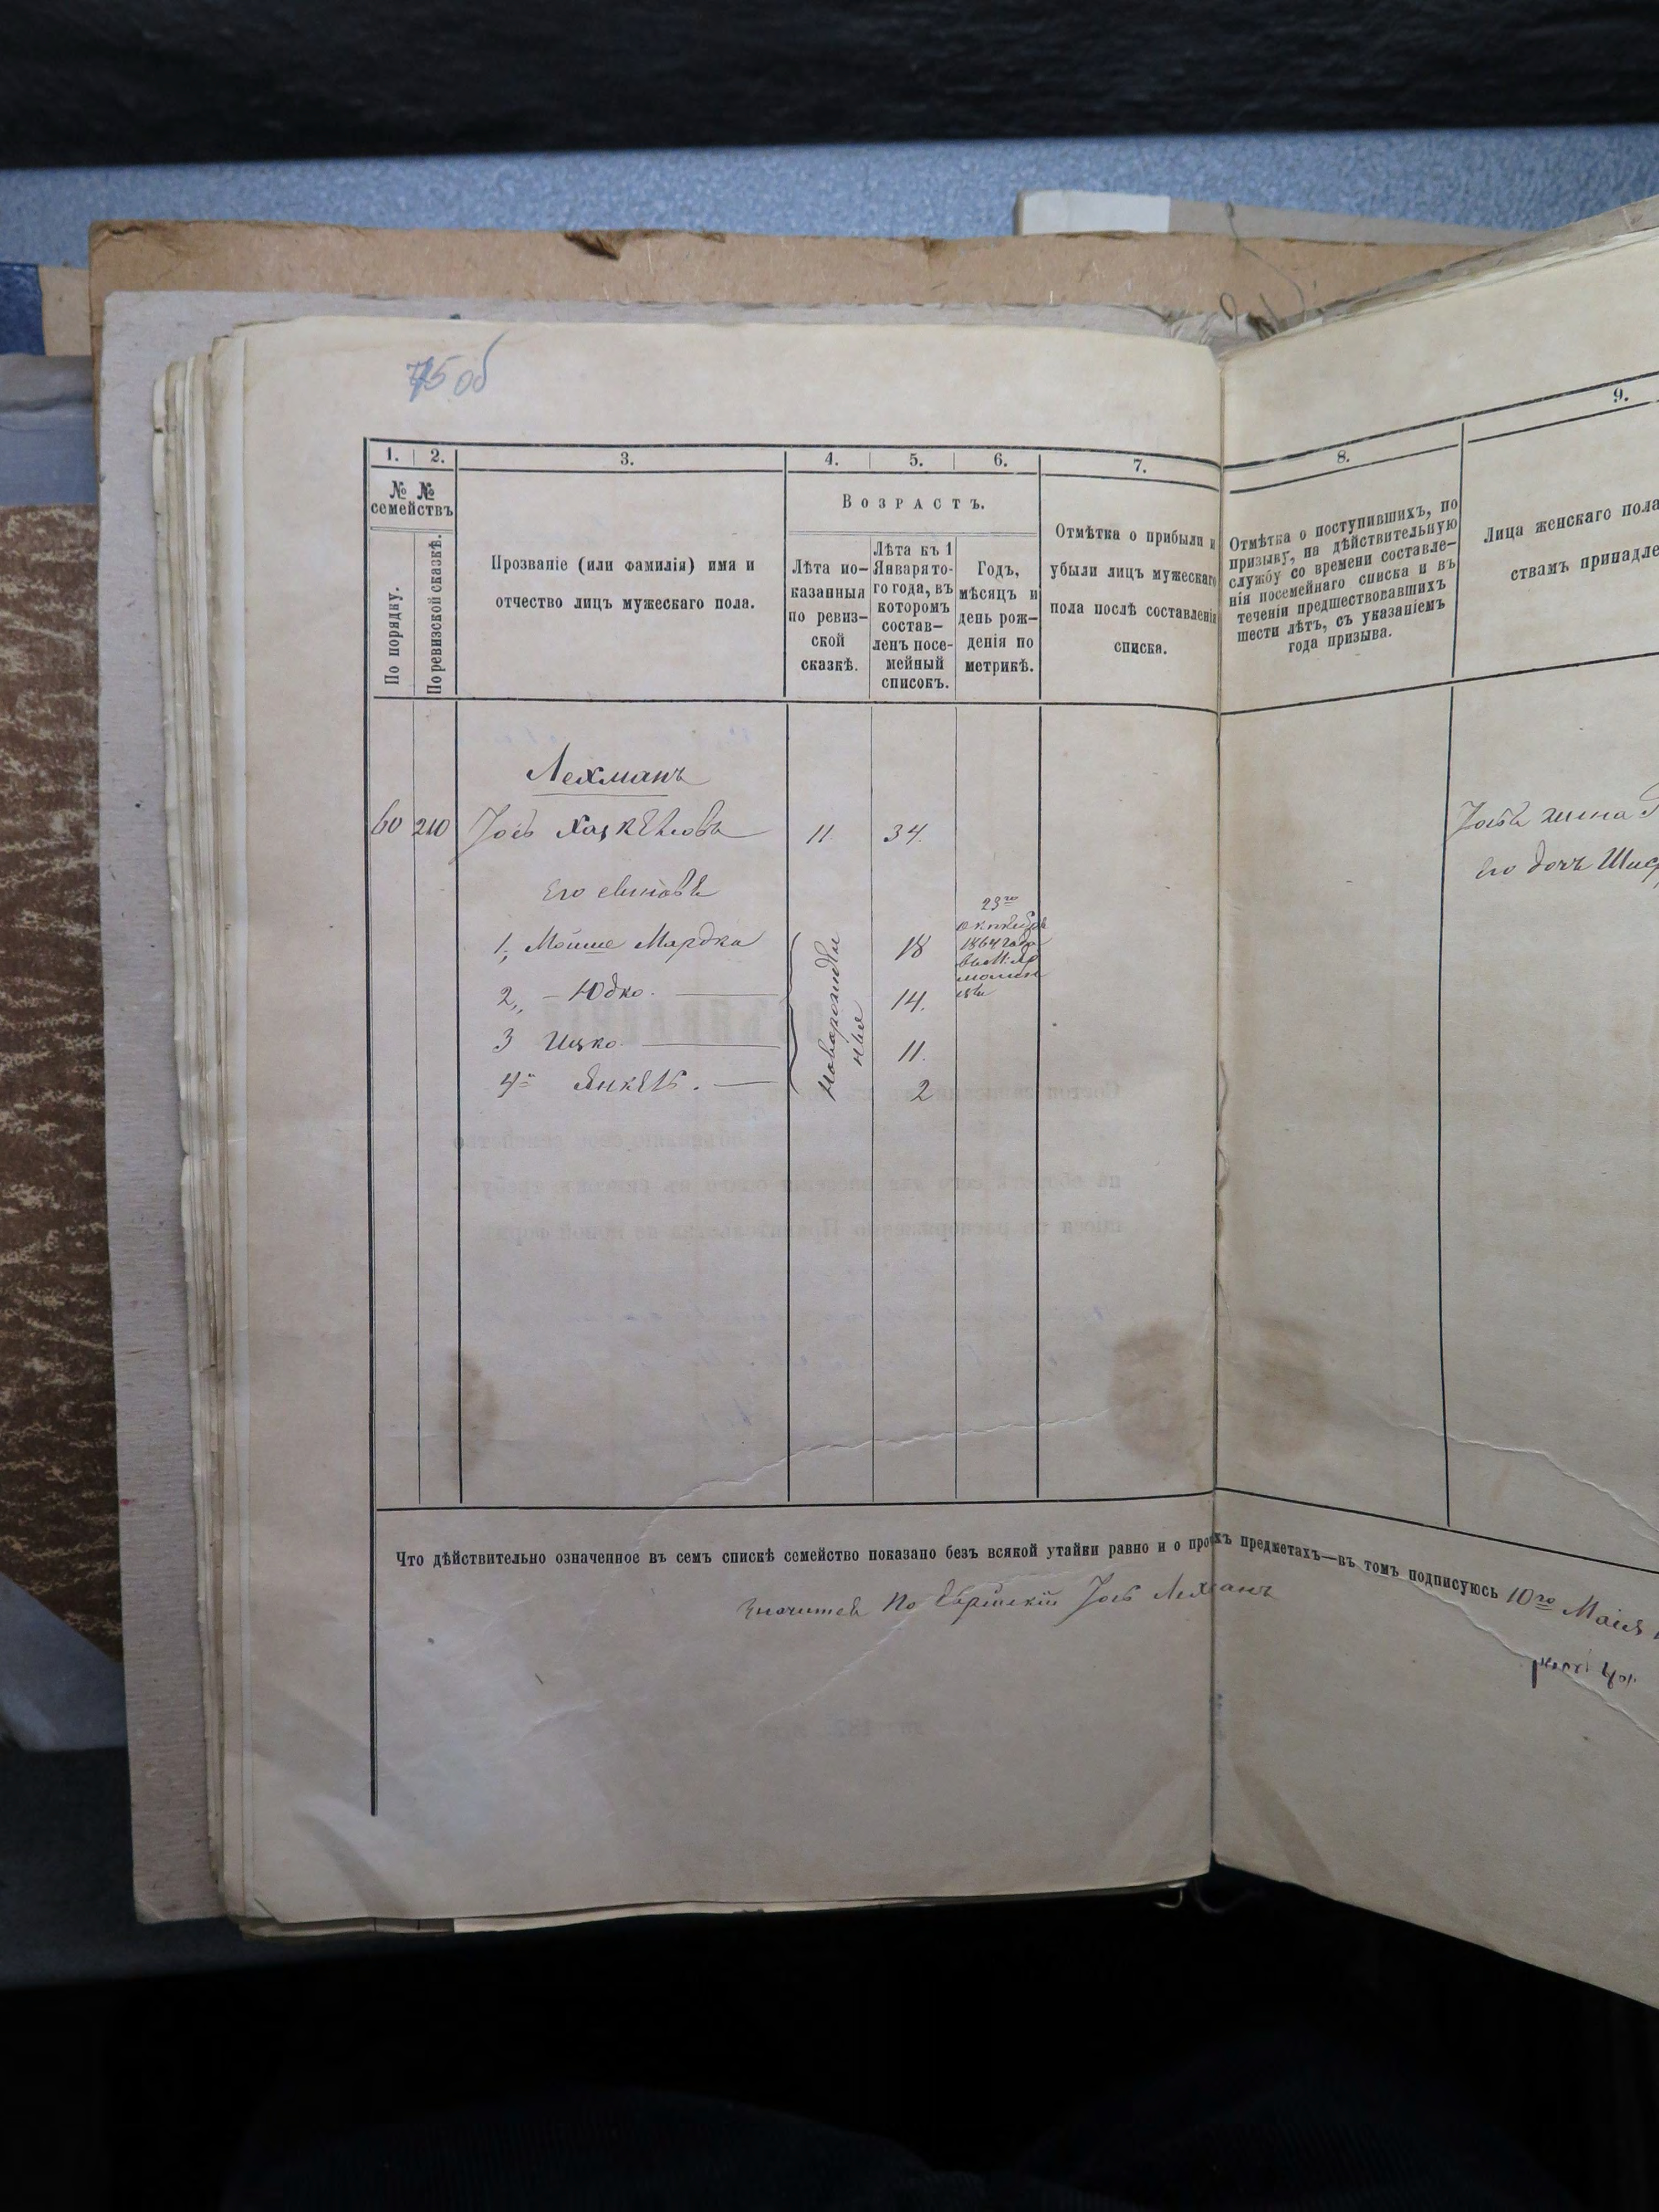 75 об
1. 2. 3. 4. 5. 6. 7. 8. 9.
№ № семействъ
По порядку.
По ревизской сказкѣ.
Прозваніе (или фамилія) имя и
отчество лицъ мужескаго пола.
Возрастъ.
Лѣта по-
казанныя
по ревиз-
ской
сказкѣ.
Лѣта къ 1
Января то-
го года, въ
котором
состав-
ленъ посе-
мейный
списокъ.
Годъ,
мѣсяцъ и
день рож-
денія по
метрикѣ.
Отмѣтка о прибыли и
убыли лицъ мужескаго
пола послѣ составленія
списка.
Отмѣтка о поступившихъ, по
призыву, на дѣйствительную
службу со времени составле-
нія посемейнаго списка и въ
теченіи предшествовавшихъ
шести лѣтъ, съ указаніемъ
года призыва.
Лица женскаго пола
ствамъ принадле
Лехманъ
60 210 Іось 11. 34.
Его
1, Мойше Мардко 18
2,, – Юдко. 14.
3 Ицко 11.
4й Янкель. 2
Новорожден
ные
23го
октября
1864 года
жена
Его дочь
Что дѣйствительно означенное въ семъ спискѣ семейство показано безъ всякой утайки равно и о прочихъ предметахъ—въ томъ подписуюсь 10го Маія
По Іось Лехманъ